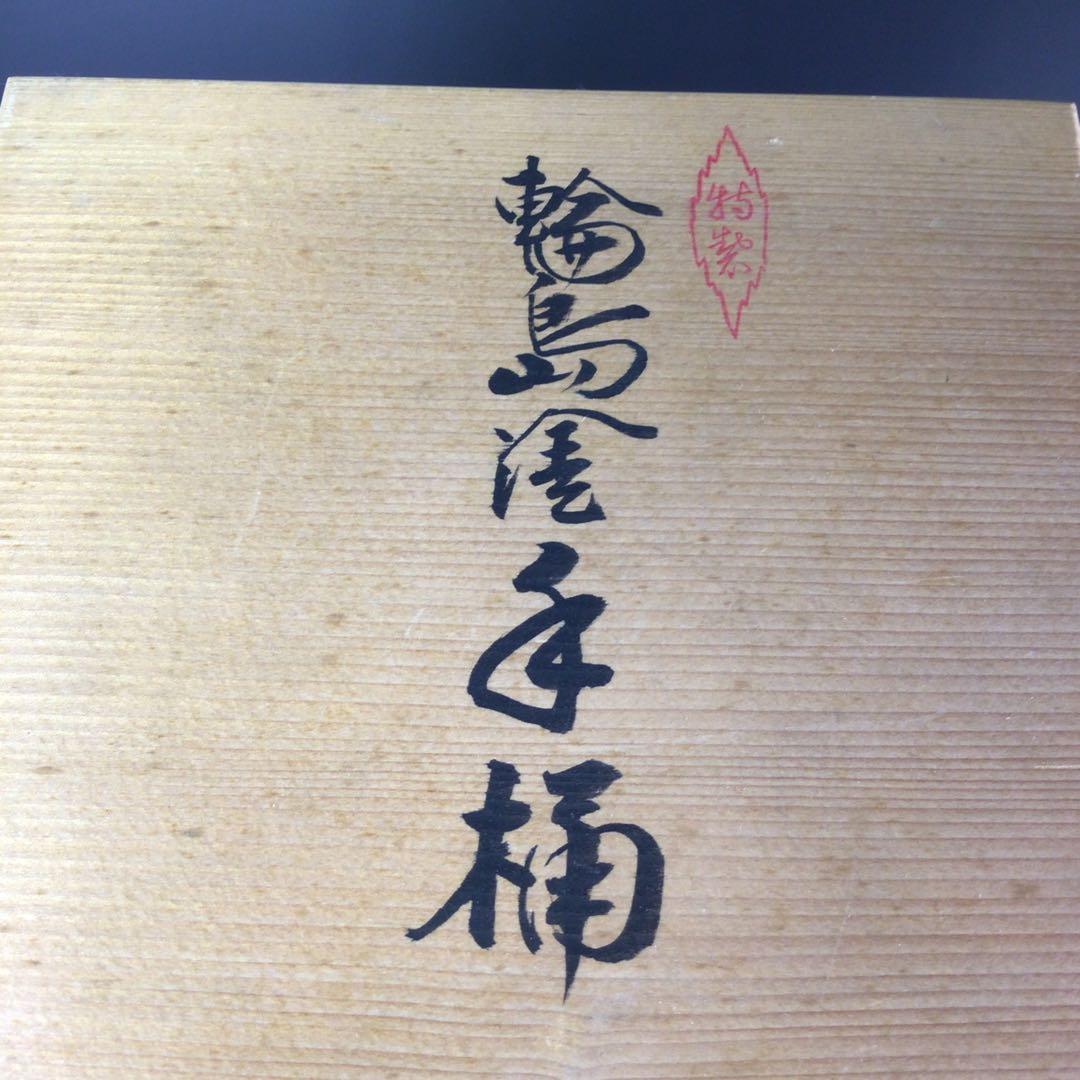 特製
輪島塗手桶